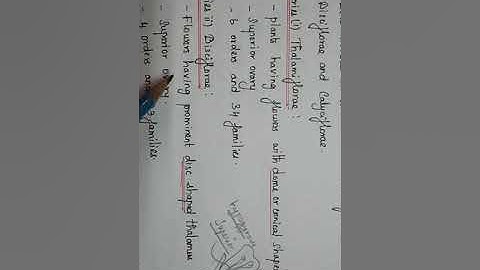 Disciflorae and Calyciflorae.
ries (i) Thalamiflorae :
- plants having flowers with dome or conical shape
- Superior ovary
- 6 orders and 34 families.
ries ii) Disciflorae :
- Flowers having prominent disc shaped thalamus
- Superior ovary
- 4 orders and 3 families.
Hypogynous
Superior